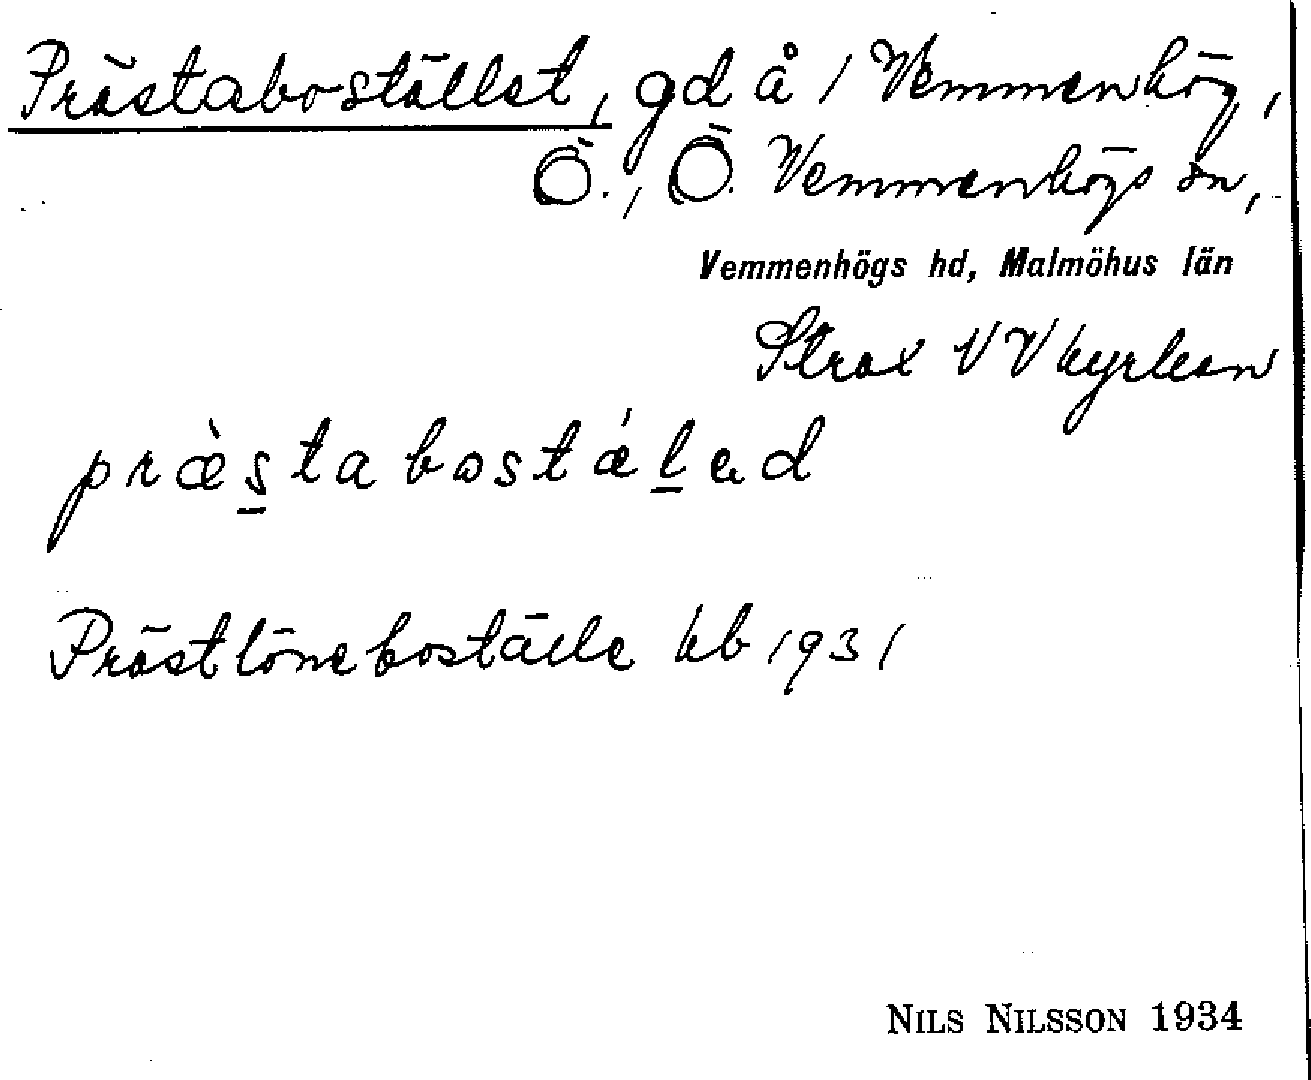 Prästabostället, gd å 1 Vemmenhög,
Ö., Ö. Vemmenhögs sn,
Vemmenhögs hd, Malmöhus län
Strax V V kyrkan
præ̀s̲tabostǽl̲ad
Prästlöneboställe kb 1931
NILS NILSSON 1934